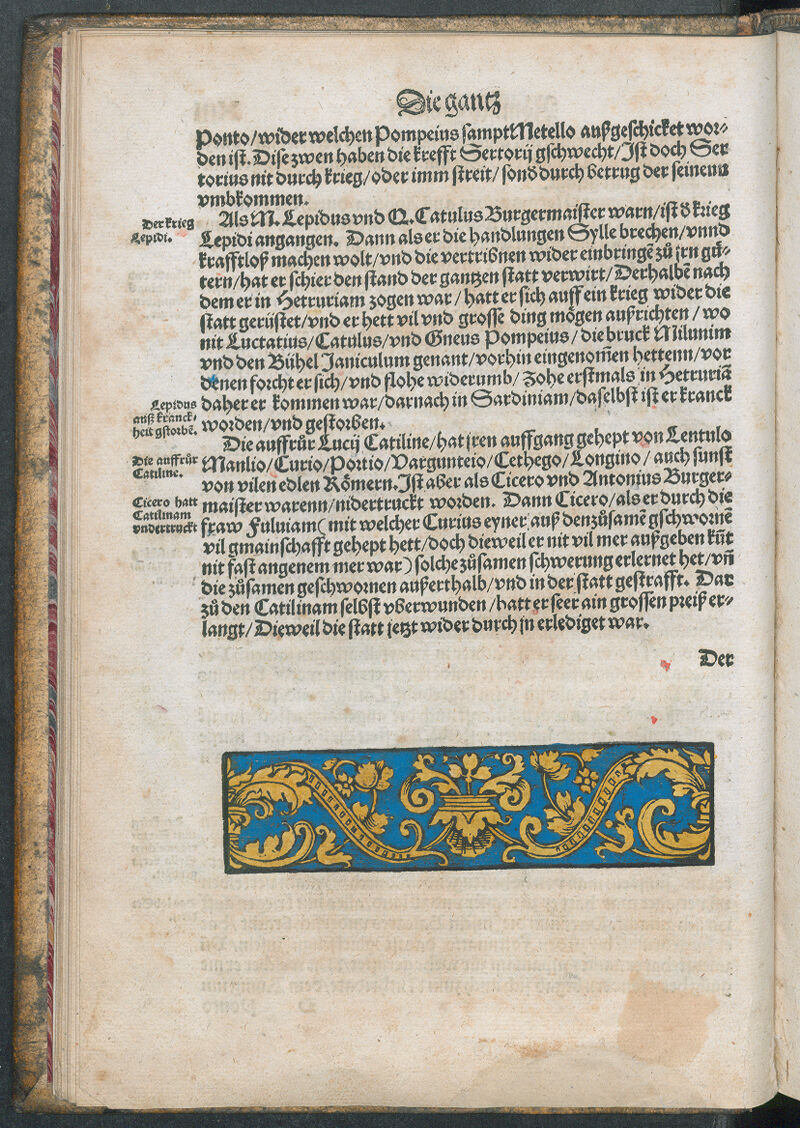 Die gantz
Ponto/wider welchen Pompeius sampt Metello außgeschicket wor⸗
den ist. Dise zwen haben die krefft Sertorij gschwecht/Jst doch Ser
torius nit durch krieg/oder imm streit/sonđ durch betrug der seinenn
vmbkommen.
Der krieg
Lepidi.
Als M. Lepidus vnd Q. Catulus Burgermaister warn/ist đ krieg
Lepidi angangen. Dann als er die handlungen Sylle brechen/vnnd
krafftloß machen wolt/vnd die vertribnen wider einbringē zů jrn gů⸗
tern/hat er schier den stand der gantzen statt verwirt/Derhalbē nach
dem er in Hetruriam zogen war/hatt er sich auff ein krieg wider die
statt gerüstet/vnd er hett vil vnd grosse ding mögen außrichten/wo
nit Luctatius/Catulus/vnd Gneus Pompeius/die bruck Milunim
vnd den Bühel Janiculum genant/vorhin eingenom̄en hettenn/vor
denen forcht er sich/vnd flohe widerumb/Zohe erstmals in Hetruriā
Lepidus
auß kranck⸗
heit gstorbē.
daher er kommen war/darnach in Sardiniam/daselbst ist er kranck
worden/vnd gestorben.
Die auffrůr
Catiline.
Die auffrůr Lucij Catiline/hat jren auffgang gehept von Lentulo
Manlio/Curio/Portio/Vargunteio/Cethego/Longino/auch sunst
von vilen edlen Römern. Jst aber als Cicero vnd Antonius Burger⸗
Cicero hatt
Catilinam
vndertruckt
maister warenn/nidertruckt worden. Dann Cicero/als er durch die
fraw Fuluiam (mit welcher Curius eyner auß den zůsamē gschwornē
vil gmainschafft gehept hett/doch dieweil er nit vil mer außgeben kūt
nit fast angenem mer war) solche zůsamen schwerung erlernet het/vn̄
die zůsamen geschwornen außerthalb/vnd in der statt gestrafft. Dar
zů den Catilinam selbst vberwunden/hatt er seer ain grossen preiß er⸗
langt/Dieweil die statt jetzt wider durch jn erlediget war.
Der